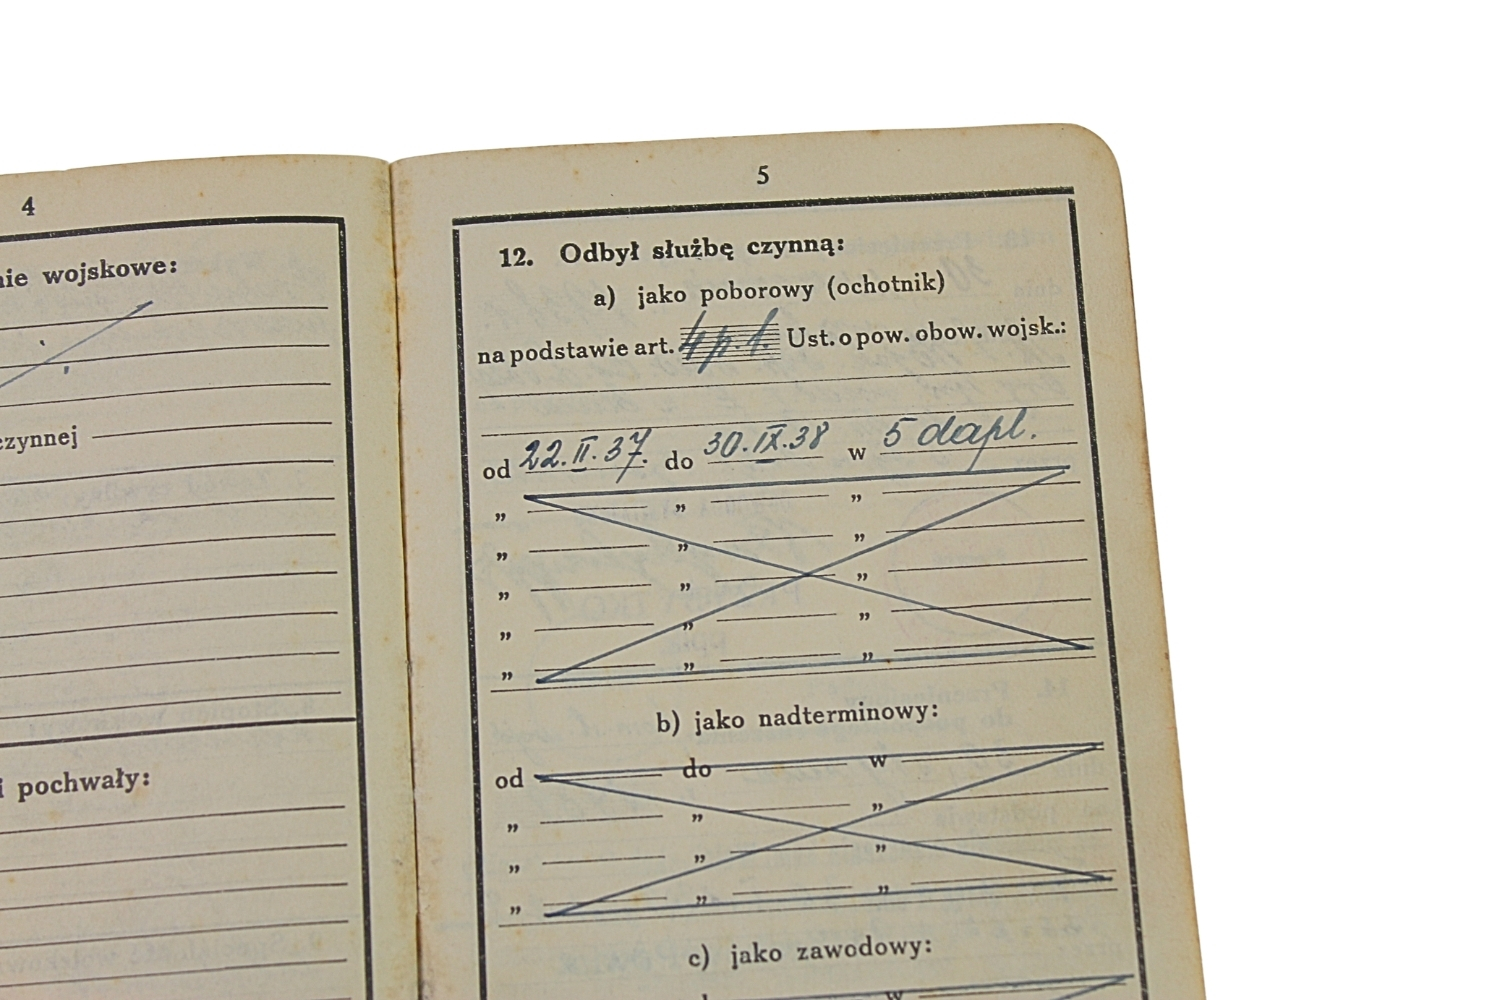 4
nie wojskowe:
czynnej
i pochwały:
5
12. Odbył służbę czynną:
a) jako poborowy (ochotnik)
na podstawie art. 4 p. 1. Ust. o pow. obow. wojsk.:
od 22.II.37. do 30.IX.38 w 5 dapl.
„ „ „
„ „ „
„ „ „
„ „ „
„ „ „
b) jako nadterminowy:
od do w
„ „ „
„ „ „
„ „ „
c) jako zawodowy:
w